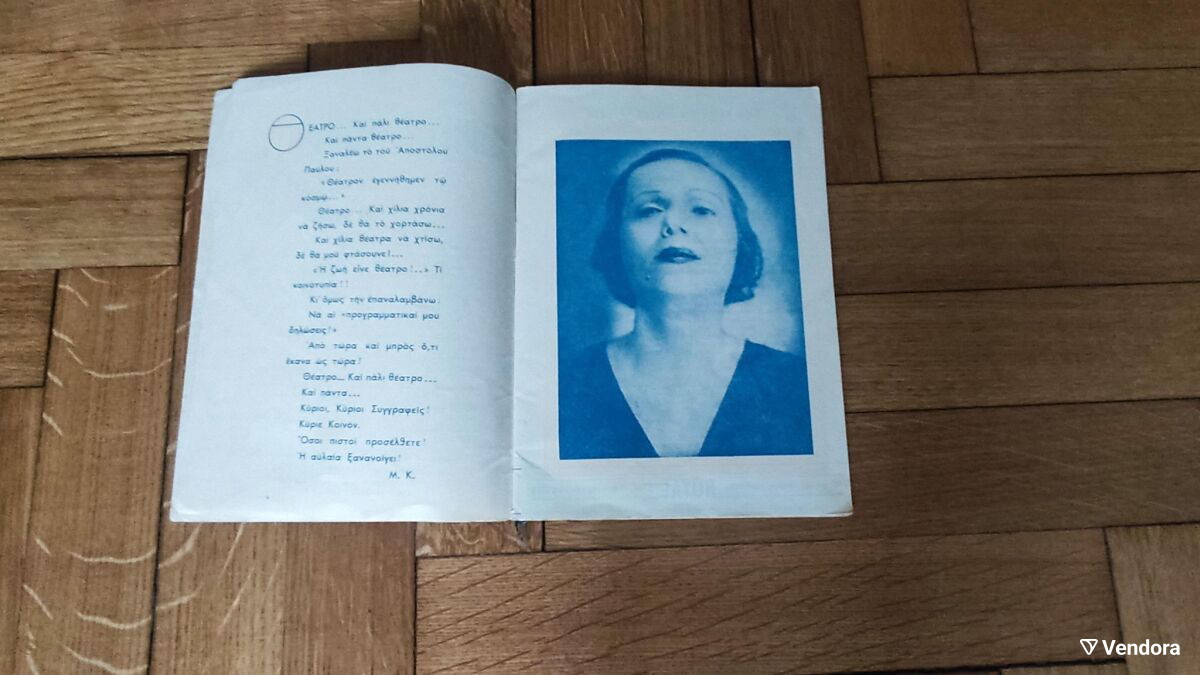 ΘΕΑΤΡΟ... Καὶ πάλι θέατρο...
Καὶ πάντα θέατρο...
Ξαναλέω τὸ τοῦ Ἀποστόλου
Παύλου:
«Θέατρον ἐγεννήθημεν τῷ
κόσμῳ...»
Θέατρο... Καὶ χίλια χρόνια
νὰ ζήσω, δὲ θὰ τὸ χορτάσω...
Καὶ χίλια θέατρα νὰ χτίσω,
δὲ θὰ μοῦ φτάσουνε!...
«Ἡ ζωὴ εἶνε θέατρο!..» Τί
κοινοτυπία!!
Κι' ὅμως τὴν ἐπαναλαμβάνω:
Νὰ αἱ «προγραμματικαί μου
δηλώσεις!»
Ἀπὸ τώρα καὶ μπρὸς ὅ,τι
ἔκανα ὡς τώρα!
Θέατρο... Καὶ πάλι θέατρο...
Καὶ πάντα...
Κύριοι, Κύριοι Συγγραφεῖς!
Κύριε Κοινόν.
Ὅσοι πιστοὶ προσέλθετε!
Ἡ αὐλαία ξανανοίγει!
Μ. Κ.
Vendora